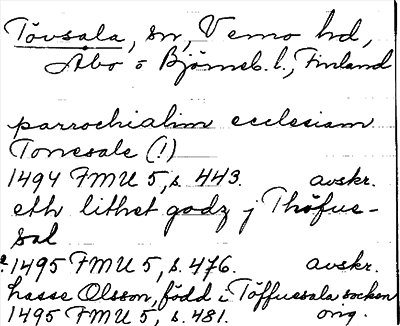 Tövsala, sn, Vemo hd,
Åbo o Björneb. l., Finland
parrochialim ecclesiam
Tonesale (!)
1494 FMU 5, s. 443. avskr.
eth lithet godz j Thöfue-
sal
1495 FMU 5, s. 476. avskr.
hasse Olsson, född i Töffuesala socken
1495 FMU 5, s. 481. orig.